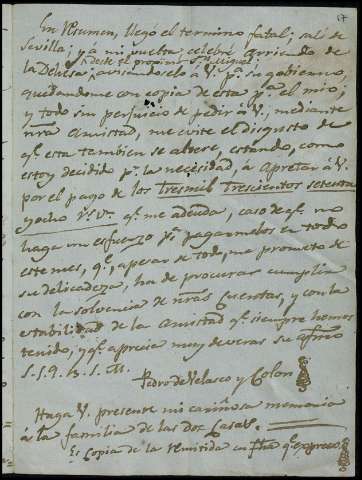 17
En resumen, llegó el termino fatal; salí de
Sevilla; y á mi vuelta celebré arriendo de
desde el proximo Sn. Miguel;
la Dehesa, avisandoselo á V. pa. su gobierno,
quedandome con copia de esta pa. el mio; 
y todo sin perjuicio de pedir á V., mediante
nra. amistad, me evite el disgusto de
qe. esta tambien se altere, estando, como
estoy decidido pr. la necesidad, á apretar á V.
por el pago de los tresmil trescientos setenta
y ocho rs. vn. qe. me adeuda, caso de qe. no
haga un esfuerzo pa. pagarmelos en todo
este mes, qe., apesar de todo, me prometo de
su delicadeza, ha de procurar cumplir
con la solvencia de nras. cuentas, y con la
estabilidad de la amistad qe. siempre hemos
tenido, y qe. aprecia muy deveras su afmo.
S. S. q. B. S. M.
Pedro de Velasco y Colon
Haga V. presente mi cariñosa memoria
á la familia de las dos Casas.
Es Copia de la remitida en fha. qe. expresa